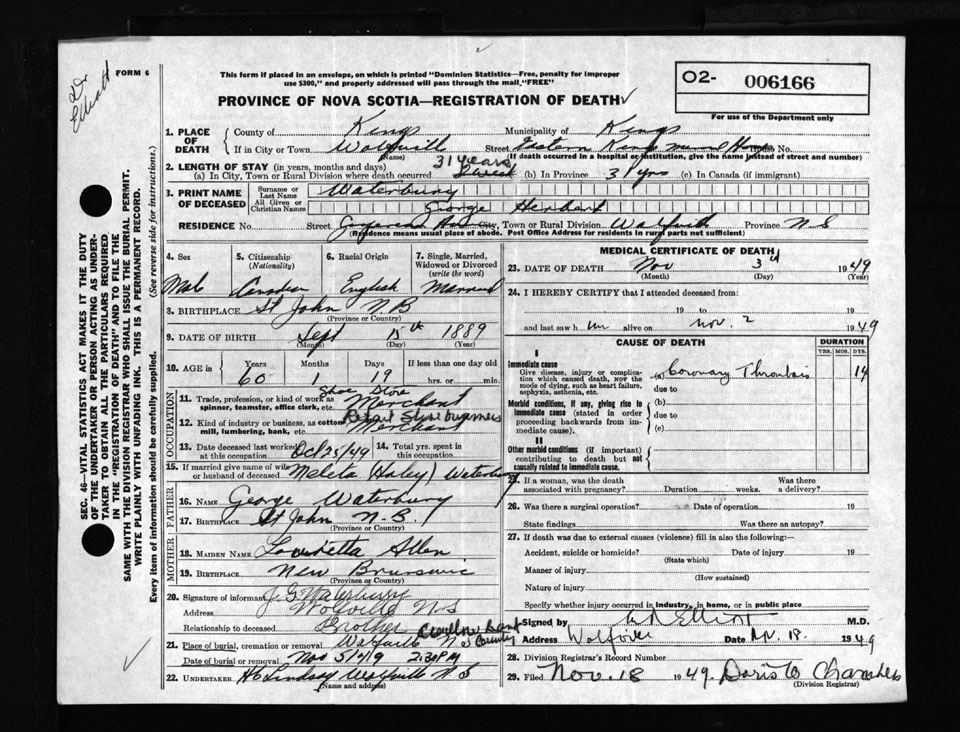 Dr
Elliott
FORM 6
This form if placed in an envelope, on which is printed "Dominion Statistics—Free, penalty for improper
use $300," and properly addressed will pass through the mail "FREE"
PROVINCE OF NOVA SCOTIA—REGISTRATION OF DEATH
O2- 006166
For use of the Department only
SEC. 46—VITAL STATISTICS ACT MAKES IT THE DUTY
OF THE UNDERTAKER OR PERSON ACTING AS UNDER-
TAKER TO OBTAIN ALL THE PARTICULARS REQUIRED
IN THE "REGISTRATION OF DEATH" AND TO FILE THE
SAME WITH THE DIVISION REGISTRAR WHO SHALL ISSUE THE BURIAL PERMIT.
WRITE PLAINLY WITH UNFADING INK. THIS IS A PERMANENT RECORD.
Every item of information should be carefully supplied. (See reverse side for instructions.)
1. PLACE OF DEATH County of Kings Municipality of Kings
If in City or Town Wolfville Street Western Kings House No.
(Name) (If death occurred in a hospital or institution, give the name instead of street and number)
2. LENGTH OF STAY (in years, months and days) 31 years
(a) In City, Town or Rural Division where death occurred (b) In Province 31 yrs (c) In Canada (if immigrant)
3. PRINT NAME OF DECEASED Surname or Last Name Waterbury
All Given or Christian Names George Herbert
RESIDENCE No. Street City, Town or Rural Division Wolfville Province N S
(Residence means usual place of abode. Post Office Address for residents in rural parts not sufficient)
4. Sex 5. Citizenship (Nationality) 6. Racial Origin 7. Single, Married, Widowed or Divorced (write the word)
Male Canadian English Married
8. BIRTHPLACE St John N B
(Province or Country)
9. DATE OF BIRTH Sept 15th 1889
(Month) (Day) (Year)
10. AGE in Years Months Days If less than one day old
60 1 19 hrs. or min.
OCCUPATION
11. Trade, profession, or kind of work as spinner, teamster, office clerk, etc. Shoe Store Merchant
12. Kind of industry or business, as cotton mill, lumbering, bank, etc. Retail Shoe business Merchant
13. Date deceased last worked at this occupation Oct 25/49 14. Total yrs. spent in this occupation
15. If married give name of wife or husband of deceased Meleta (Haley) Waterbury
FATHER
16. Name George Waterbury
17. Birthplace St John N.B.
(Province or Country)
MOTHER
18. MAIDEN NAME Allen
19. BIRTHPLACE New Brunswic
(Province or Country)
20. Signature of informant J G Waterbury
Address Wolfville N S
Relationship to deceased Brother
21. Place of burial, cremation or removal Wolfville Willow Bank
Date of burial or removal Nov 5/49 2:30 PM
22. UNDERTAKER H C Lindsay Wolfville N S
(Name and address)
MEDICAL CERTIFICATE OF DEATH
23. DATE OF DEATH Nov 3rd 1949
(Month) (Day) (Year)
24. I HEREBY CERTIFY that I attended deceased from:
19 to 19
and last saw him alive on Nov. 2 1949
CAUSE OF DEATH DURATION
YRS. MOS. DYS.
I
Immediate cause
Give disease, injury or complication which caused death, not the mode of dying, such as heart failure, asphyxia, asthenia, etc. (a) Coronary Thrombosis 14
due to
Morbid conditions, if any, giving rise to immediate cause (stated in order proceeding backwards from immediate cause). (b)
due to
(c)
II
Other morbid conditions (if important) contributing to death but not causally related to immediate cause.
25. If a woman, was the death associated with pregnancy? Duration weeks. Was there a delivery?
26. Was there a surgical operation? Date of operation 19
State findings Was there an autopsy?
27. If death was due to external causes (violence) fill in also the following:—
Accident, suicide or homicide? Date of injury 19
(State which)
Manner of injury
(How sustained)
Nature of injury
Specify whether injury occurred in industry, in home, or in public place
Signed by Elliott M.D.
Address Wolfville Date Nov. 18. 1949
28. Division Registrar's Record Number
29. Filed Nov. 18 1949. Doris Chambers
(Division Registrar)